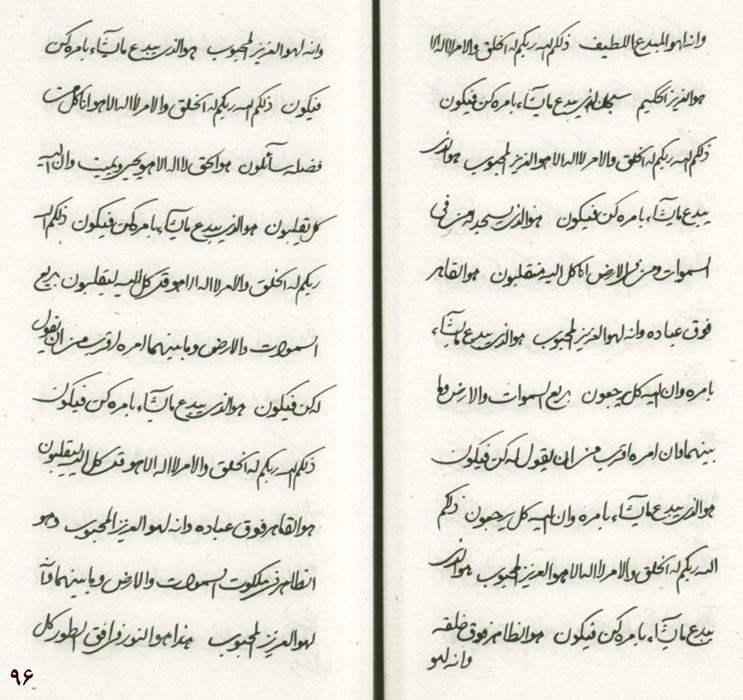 وانه لهو المبدع اللطيف ذلكم الله ربكم له الخلق والامر لا اله الا
هو العزيز الحكيم سبحان الذي يبدع ما يشاء بامره كن فيكون
ذلكم الله ربكم له الخلق والامر لا اله الا هو العزيز المحبوب هو الذي
يبدع ما يشاء بامره كن فيكون هو الذي يسجد له من في
السموات ومن في الارض انا كل اليه منقلبون هو القاهر
فوق عباده وانه لهو العزيز المحبوب هو الذي يبدع ما يشاء
بامره وان اليه كل يرجعون بديع السموات والارض وما
بينهما وان امره اقرب من ان يقول له كن فيكون
هو الذي يبدع ما يشاء بامره وان اليه كل يرجعون ذلكم
الله ربكم له الخلق والامر لا اله الا هو العزيز المحبوب هو الذي
يبدع ما يشاء بامره كن فيكون هو الظاهر فوق خلقه
وانه لهو
وانه لهو العزيز المحبوب هو الذي يبدع ما يشاء بامره كن
فيكون ذلكم الله ربكم له الخلق والامر لا اله الا هو انا كل من
فضله سائلون هو الحق لا اله الا هو يحيي ويميت وان اليه
كل تقلبون هو الذي يبدع ما يشاء بامره كن فيكون ذلكم الله
ربكم له الخلق والامر لا اله الا هو قل كل اليه ليقلبون بديع
السموات والارض وما بينهما امره اقرب من ان يقول
له كن فيكون هو الذي يبدع ما يشاء بامره كن فيكون
ذلكم الله ربكم له الخلق والامر لا اله الا هو قل كل اليه ليقلبون
هو القاهر فوق عباده وانه لهو العزيز المحبوب وهو
الظاهر في ملكوت السموات والارض وما بينهما وانه
لهو العزيز المحبوب هذا هو النور في افق الطور كل
٩۶